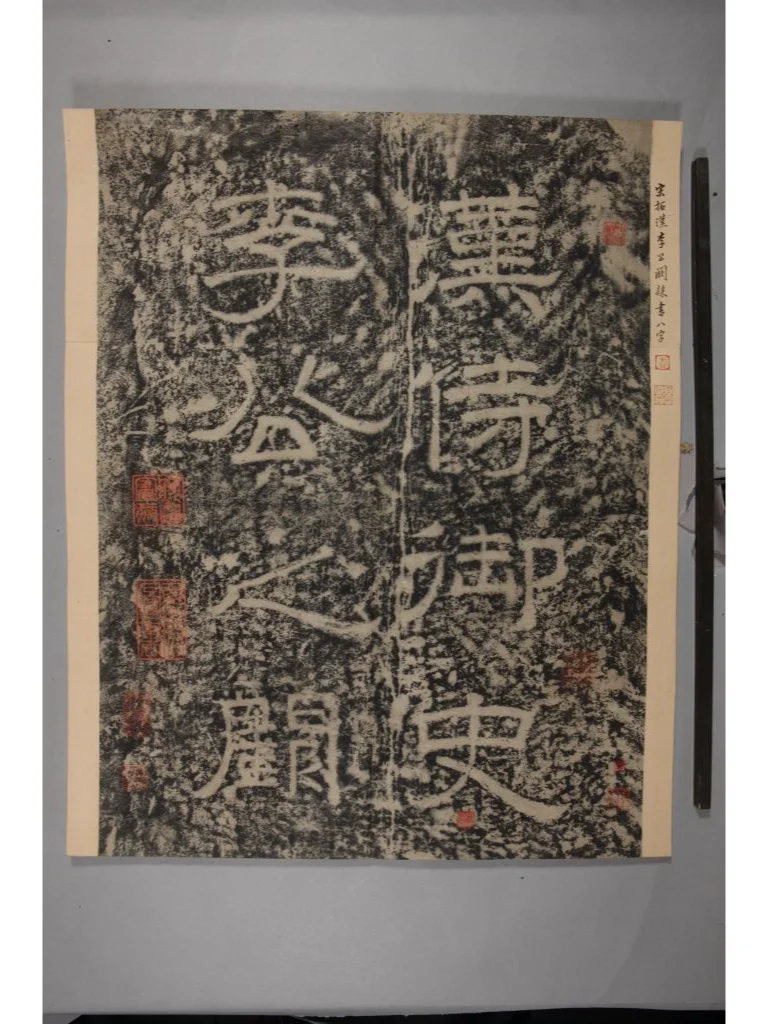 漢侍御史
李公之闕
宋拓漢李公闕隸書八字